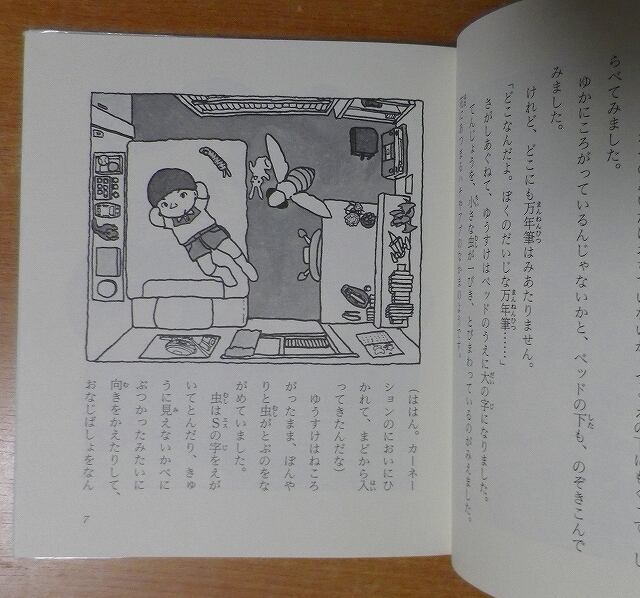 らべてみました。
ゆかにころがっているんじゃないかと、ベッドの下も、のぞきこんで
みました。
けれど、どこにも万年筆はみあたりません。
「どこなんだよ。ぼくのだいじな万年筆……」
さがしあぐねて、ゆうすけはベッドのうえに大の字になりました。
てんじょうを、小さな虫が一ぴき、とびまわっているのがみえました。
(ははん。カーネー
ションのにおいにひ
かれて、まどから入
ってきたんだな)
ゆうすけはねころ
がったまま、ぼんや
りと虫がとぶのをな
がめていました。
虫はSの字をえが
いてとんだり、きゅ
うに見えないかべに
ぶつかったみたいに
向きをかえたりして、
おなじばしょをなん
7